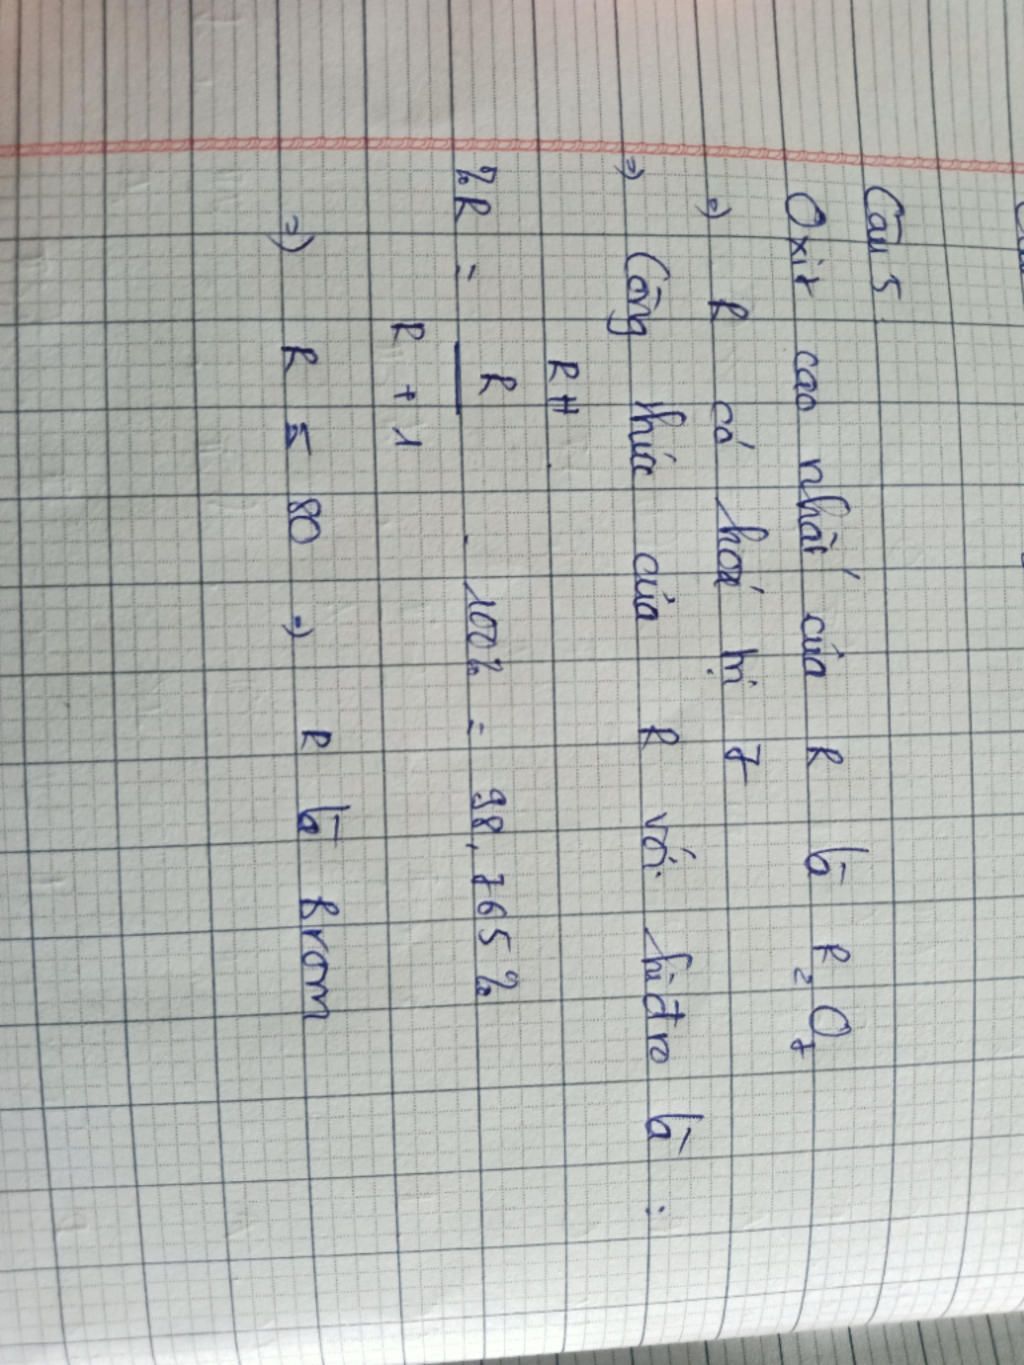 Câu 5
Oxit cao nhất của R là R₂O₇
=) R có hoá trị 7
=) Công thức của R với hiđro là :
RH
%R = R / R + 1 . 100% = 98,765%
=) R = 80 =) R là Brom